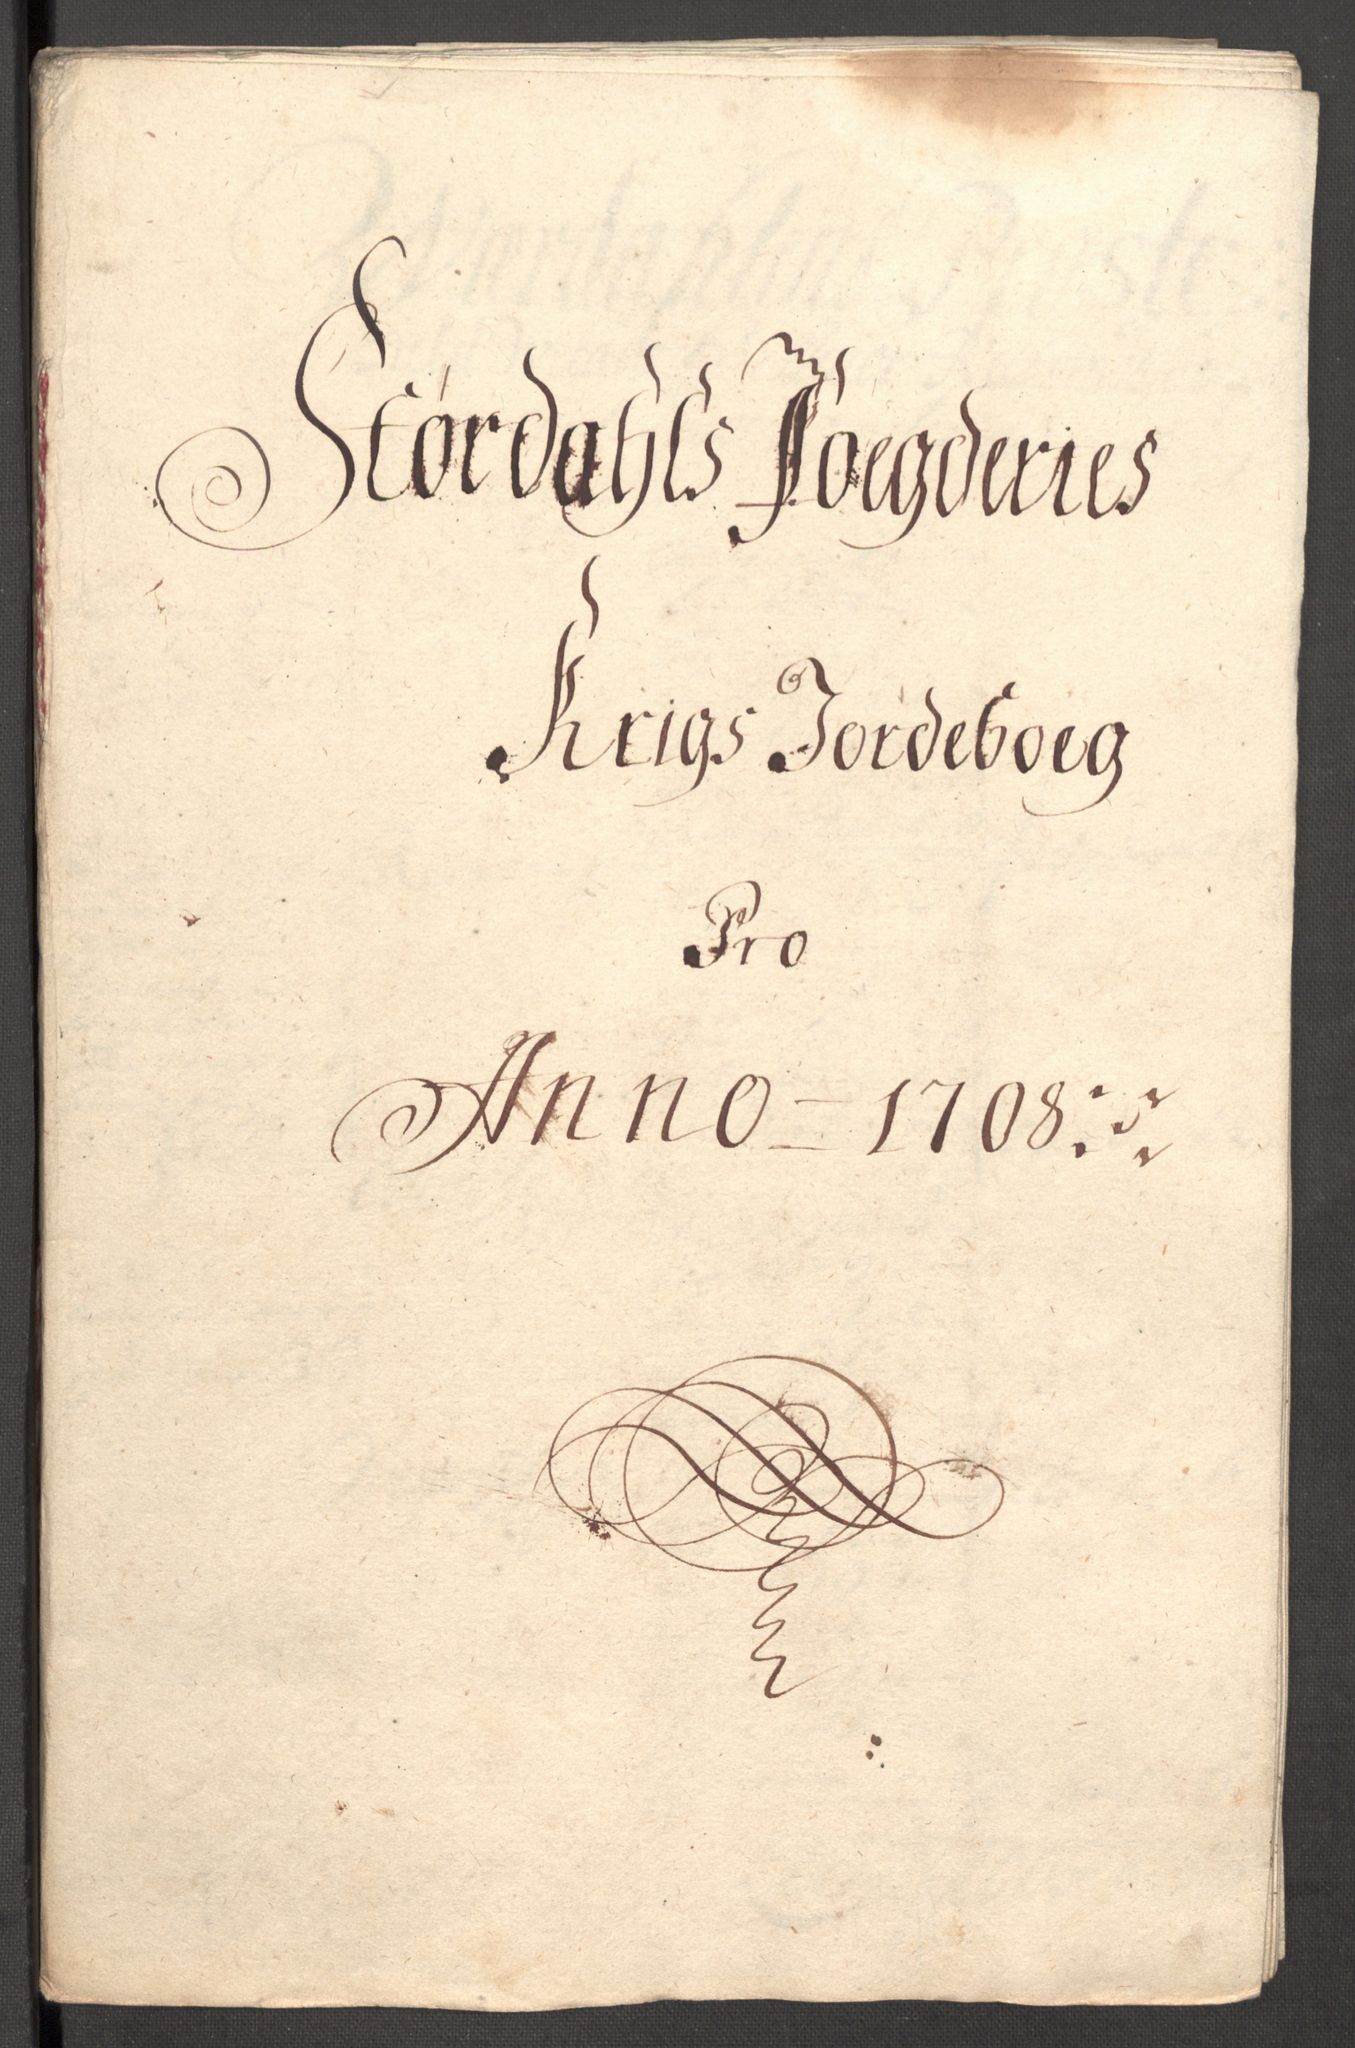 Størdahls Foegderies
Krigs Jordeboeg
Pro
Anno = 1708